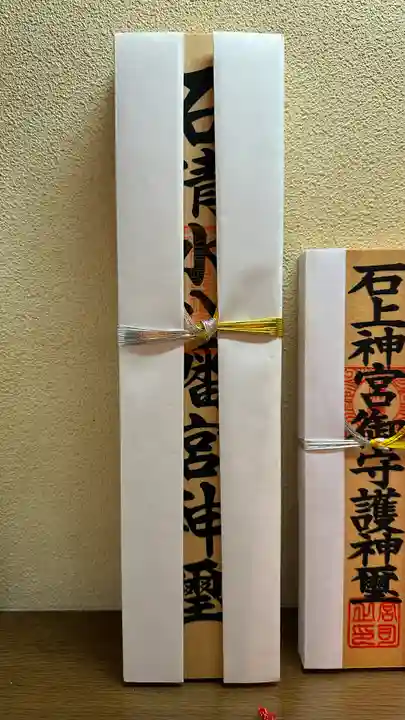 石清水八幡宮神璽
石上神宮御守護神璽